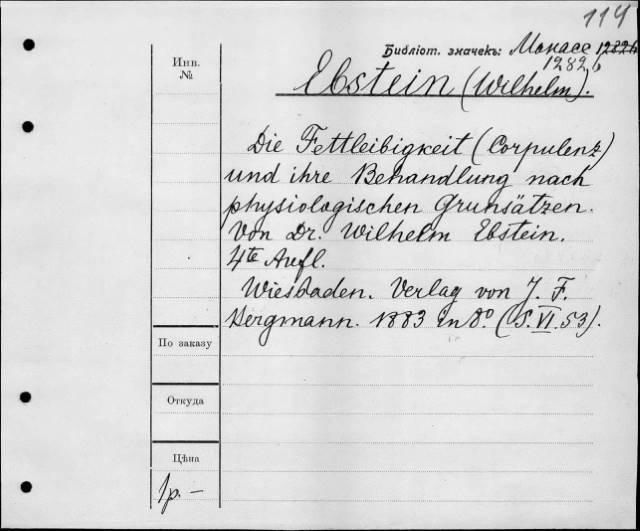 114
Библіот. значекъ: Монасе 1282b
1282b
Инв.
№
Ebstein (Wilhelm).
Die Fettleibigkeit (Corpulenz)
und ihre Behandlung nach
physiologischen Grunsätzen.
Von Dr. Wilhelm Ebstein.
4te Aufl.
Wiesbaden. Verlag von J. F.
Bergmann. 1883 in 8º. (S. VI. 53).
По заказу
Откуда
Цѣна
1р. —